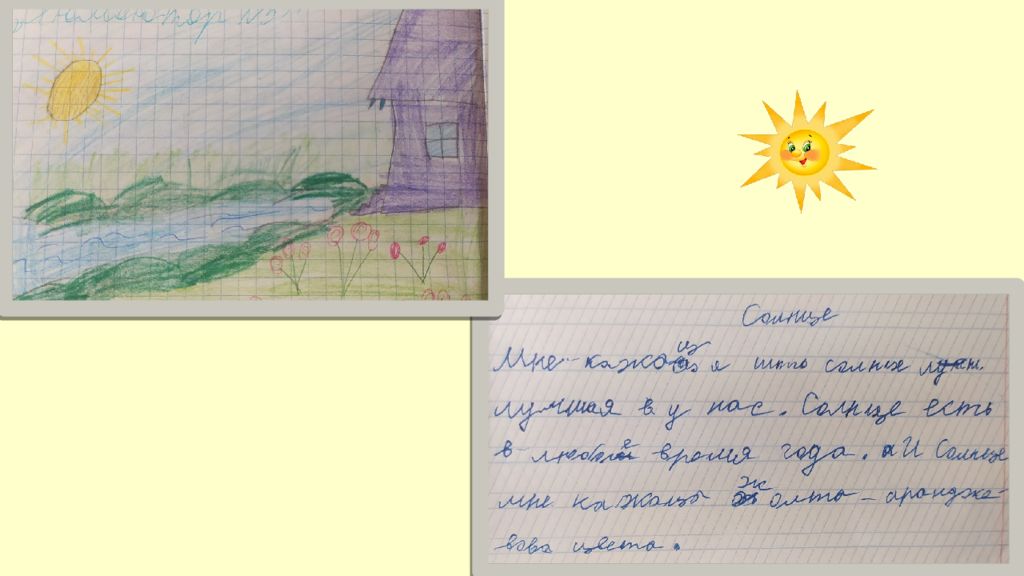 Солнце
Мне кажо из я што солнце
лучшая в у нас. Солнце есть
в любое время года. И Солнце
мне кажацы жолто - аранджо-
вова цвета.